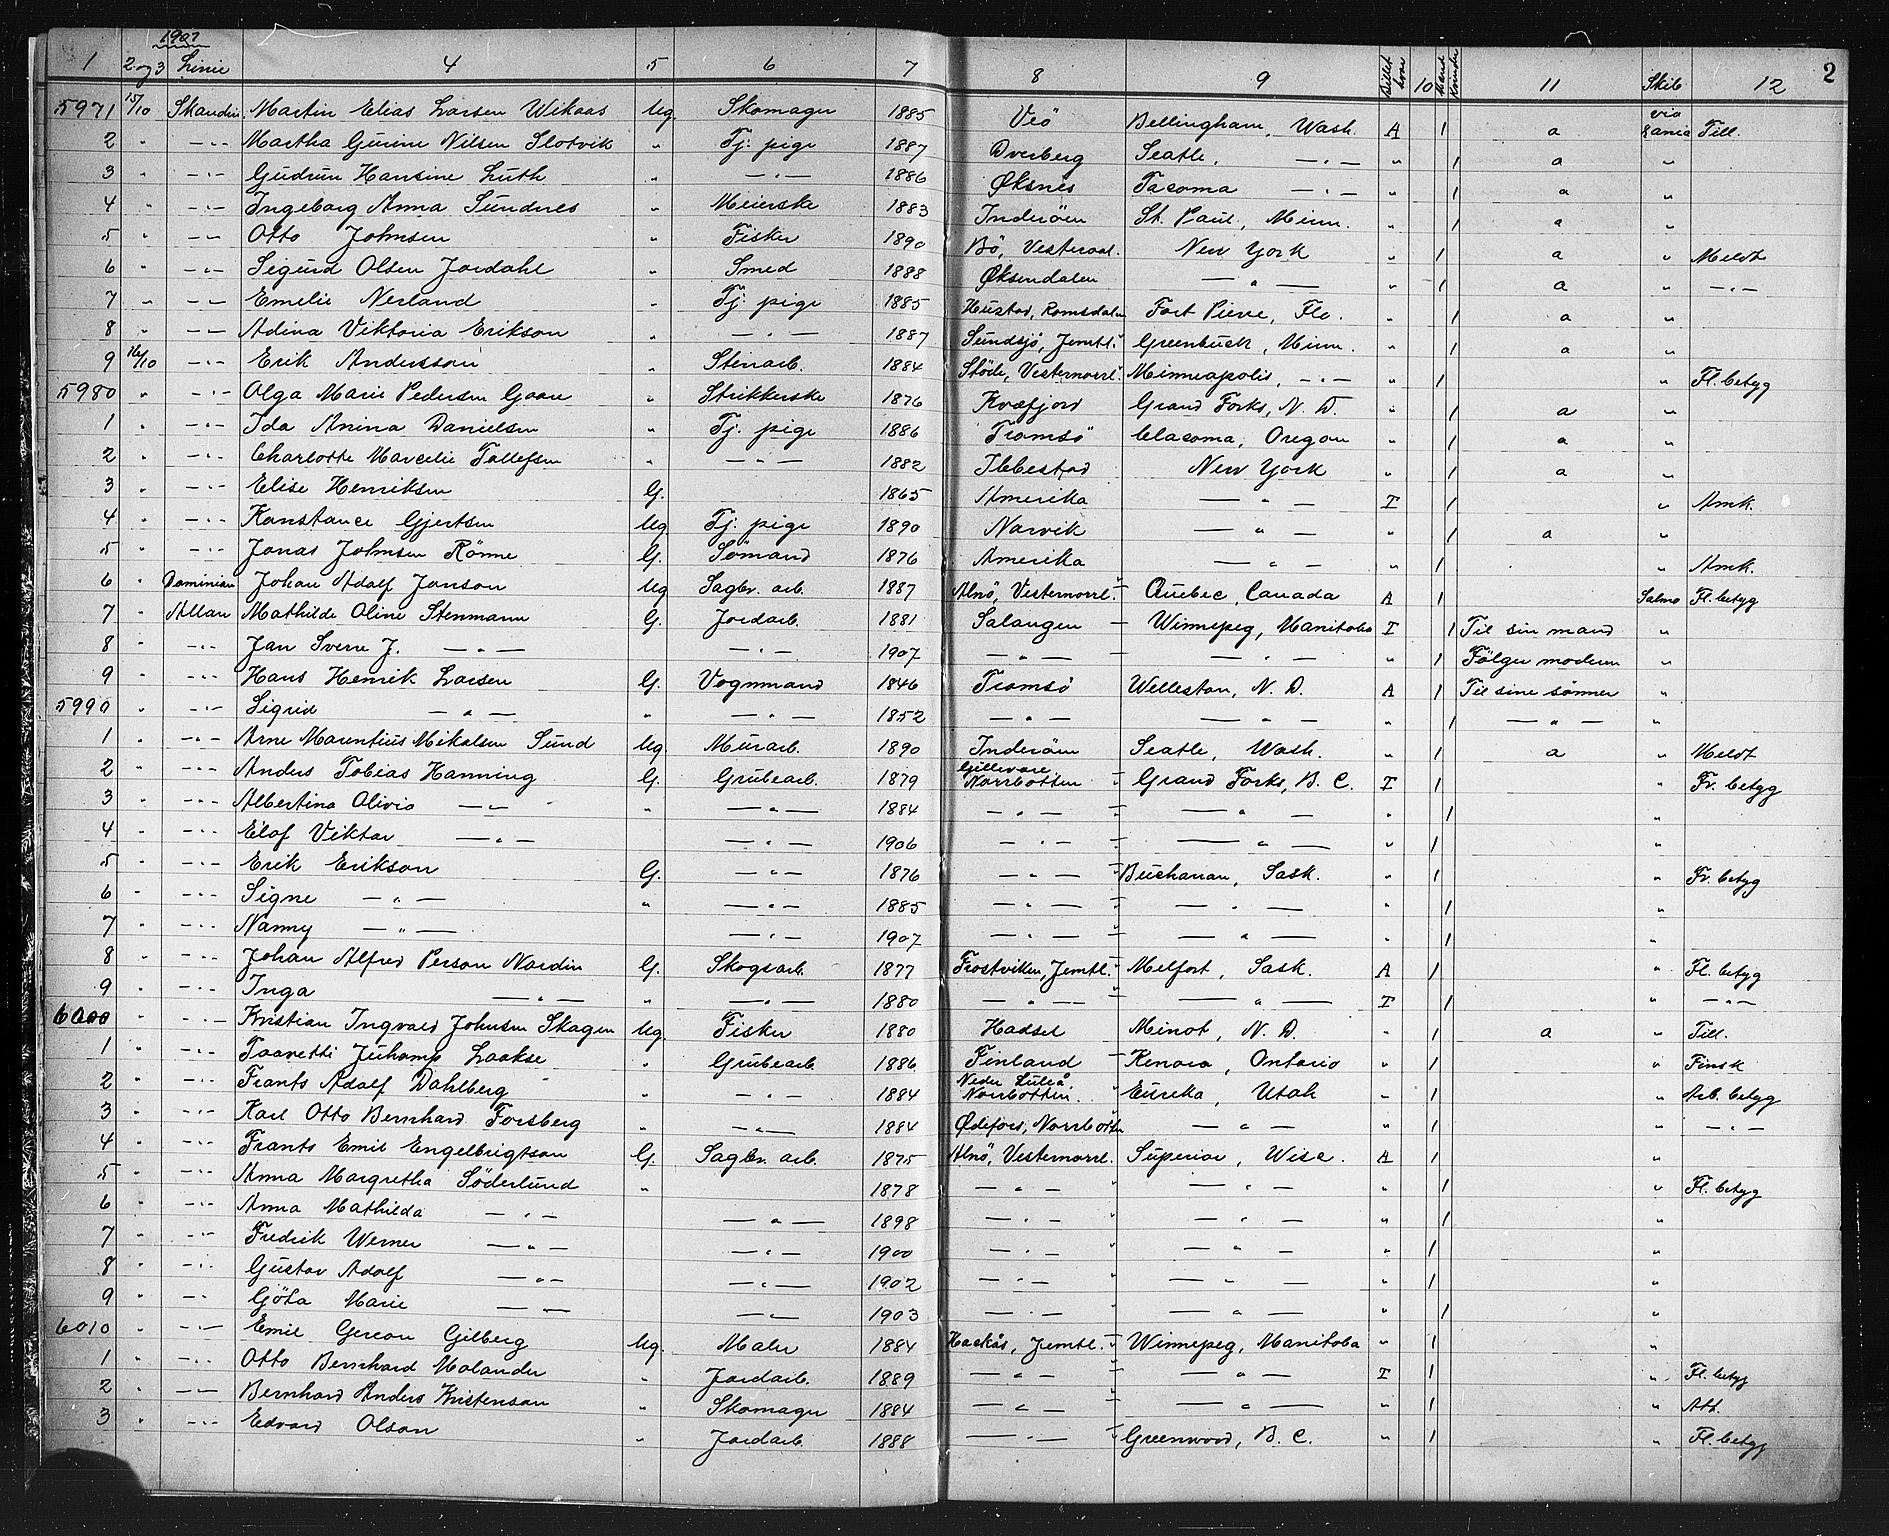 1907
1 2 og 3 Linie 4 5 6 7 8 9 Billet hvor 10 Mænd Kvinder 11 Skib 12 2
5971 15/10 Skandin. Martin Elias Larsen Wikaas Ug. Skomager 1885 Veö Bellingham, Wash. A 1 a via Till.
2 " -"- Martha Gurine Nilsen Slotvik " Tj. pige 1887 Dverberg Seatle, -"- " 1 a "
3 " -"- Gudrun Hansine Luth " -"- 1886 Øksnes Tacoma -"- " 1 a "
4 " -"- Ingeborg Anna Sundnes " Meierske 1883 Inderöen St. Paul, Minn. " 1 a "
5 " -"- Otto Johnsen " Fisker 1890 Bö, Vesteraal. New York " 1 a " Meldt
6 " -"- Sigurd Olsen Jordahl " Smed 1888 Øksendalen -"- " 1 a " -"-
7 " -"- Emelie Nerland " Tj. pige 1885 Hustad, Romsdalen Fort Pierre, Flo. " 1 a "
8 " -"- Adina Viktoria Erikson " -"- 1887 Sundsjö, Jemtl. Greenbuck, Minn. " 1 a "
9 16/10 -"- Erik Andersson " Stenarb. 1884 Stöde, Vesternorrl. Minneapolis, -"- " 1 " Fl. betyg
5980 " -"- Olga Marie Pedersen Goare " Strikkerske 1876 Kvæfjord Grand Forks, N. D. " 1 a "
1 " -"- Ida Anina Danielsen " Tj. pige 1886 Tromsö Clacoma, Oregon " 1 a "
2 " -"- Charlotte Marcelie Tollefsen " -"- 1882 Ibbestad New York " 1 a "
3 " -"- Elise Henriksen G. 1865 Amerika -"- I 1 " Amk.
4 " -"- Konstance Gjertsen Ug Tj. pige 1890 Narvik -"- " 1 a "
5 " -"- Jonas Johnsen Rönne G. Sömand 1876 Amerika -"- " 1 " Amk.
6 " Dominian Johan Adolf Janson Ug Sagbr. arb. 1887 Alnö, Vesternorrl. Quebec, Canada A 1 Salmo Fl. betyg
7 " Allan Mathilde Oline Stenmann G. Jordarb. 1881 Salangen - Winnepeg, Manitoba I 1 Til sin mand "
8 " -"- Jan Sverre J. -"- -"- 1907 -"- -"- " 1 Fölger moderen "
9 " -"- Hans Henrik Larsen G. Vognmand 1846 Tromsö Welleston, N. D. A 1 Til sine sönner "
5990 " -"- Sigrid -"- " -"- 1852 -"- -"- " 1 -"- "
1 " -"- Arne Marentius Mikalsen Sund Ug Murarb. 1890 Inderöen Seatle, Wash. " 1 a " Meldt
2 " -"- Anders Tobias Hanning G. Grubearb. 1879 Gillevare Norrbotten Grand Forks, B. C. I 1 " Fr. betyg
3 " -"- Albertina Olivia -"- " -"- 1884 -"- -"- " 1 "
4 " -"- Elof Viktor -"- -"- 1906 -"- -"- " 1 "
5 " -"- Erik Erikson G. -"- 1876 -"- Buchanan, Sask. " 1 " Fr. betyg
6 " -"- Signe -"- " -"- 1885 -"- -"- " 1 "
7 " -"- Nanny -"- -"- 1907 -"- -"- " 1 "
8 " -"- Johan Alfred Person Nordin G. Skogsarb. 1877 Frostviken, Jemtl. Melfort, Sask. A 1 " Fl. betyg
9 " -"- Inga -"- " -"- 1880 -"- -"- I 1 " -"-
6000 " -"- Kristian Ingvald Johnsen Skagen Ug. Fisker 1880 Hadsel Minot, N. D. " 1 a " Till.
1 " -"- Taavetti Juhamp Laakse " Grubearb 1886 Finland Kenora, Ontario " 1 " Finsk
2 " -"- Frants Adolf Dahlberg " -"- 1884 Neder Luleå. Norrbotten. Eureka, Utah " 1 " Arb. betyg
3 " -"- Karl Otto Bernhard Forsberg " -"- 1884 Ødefors, Norrbotten -"- " 1 " -"-
4 " -"- Frants Emil Engelbrigtson G. Sagbr. arb. 1875 Alnö, Vesternorrl. Superior, Wisc. A 1 "
5 " -"- Anna Margretha Söderlund " 1878 -"- -"- " 1 " Fl. betyg
6 " -"- Anna Mathilda -"- -"- 1898 -"- -"- " 1 "
7 " -"- Fredrik Werner -"- -"- 1900 -"- -"- " 1 "
8 " -"- Gustav Adolf -"- -"- 1902 -"- -"- " 1 "
9 " -"- Göta Marie -"- -"- 1903 -"- -"- " 1 "
6010 " -"- Emil Gereon Gilberg Ug. Maler 1884 Hackås, Jemtl. Winnepeg, Manitoba " 1 "
1 " -"- Otto Bernhard Molander " Jordarb. 1889 -"- -"- I 1 " Fl. betyg
2 " -"- Bernhard Anders Kristenson " Skomager 1884 -"- -"- " 1 " Att.
3 " -"- Edvard Olson " Jordarb. 1888 -"- Greenwood, B. C. " 1 " Fl. betyg